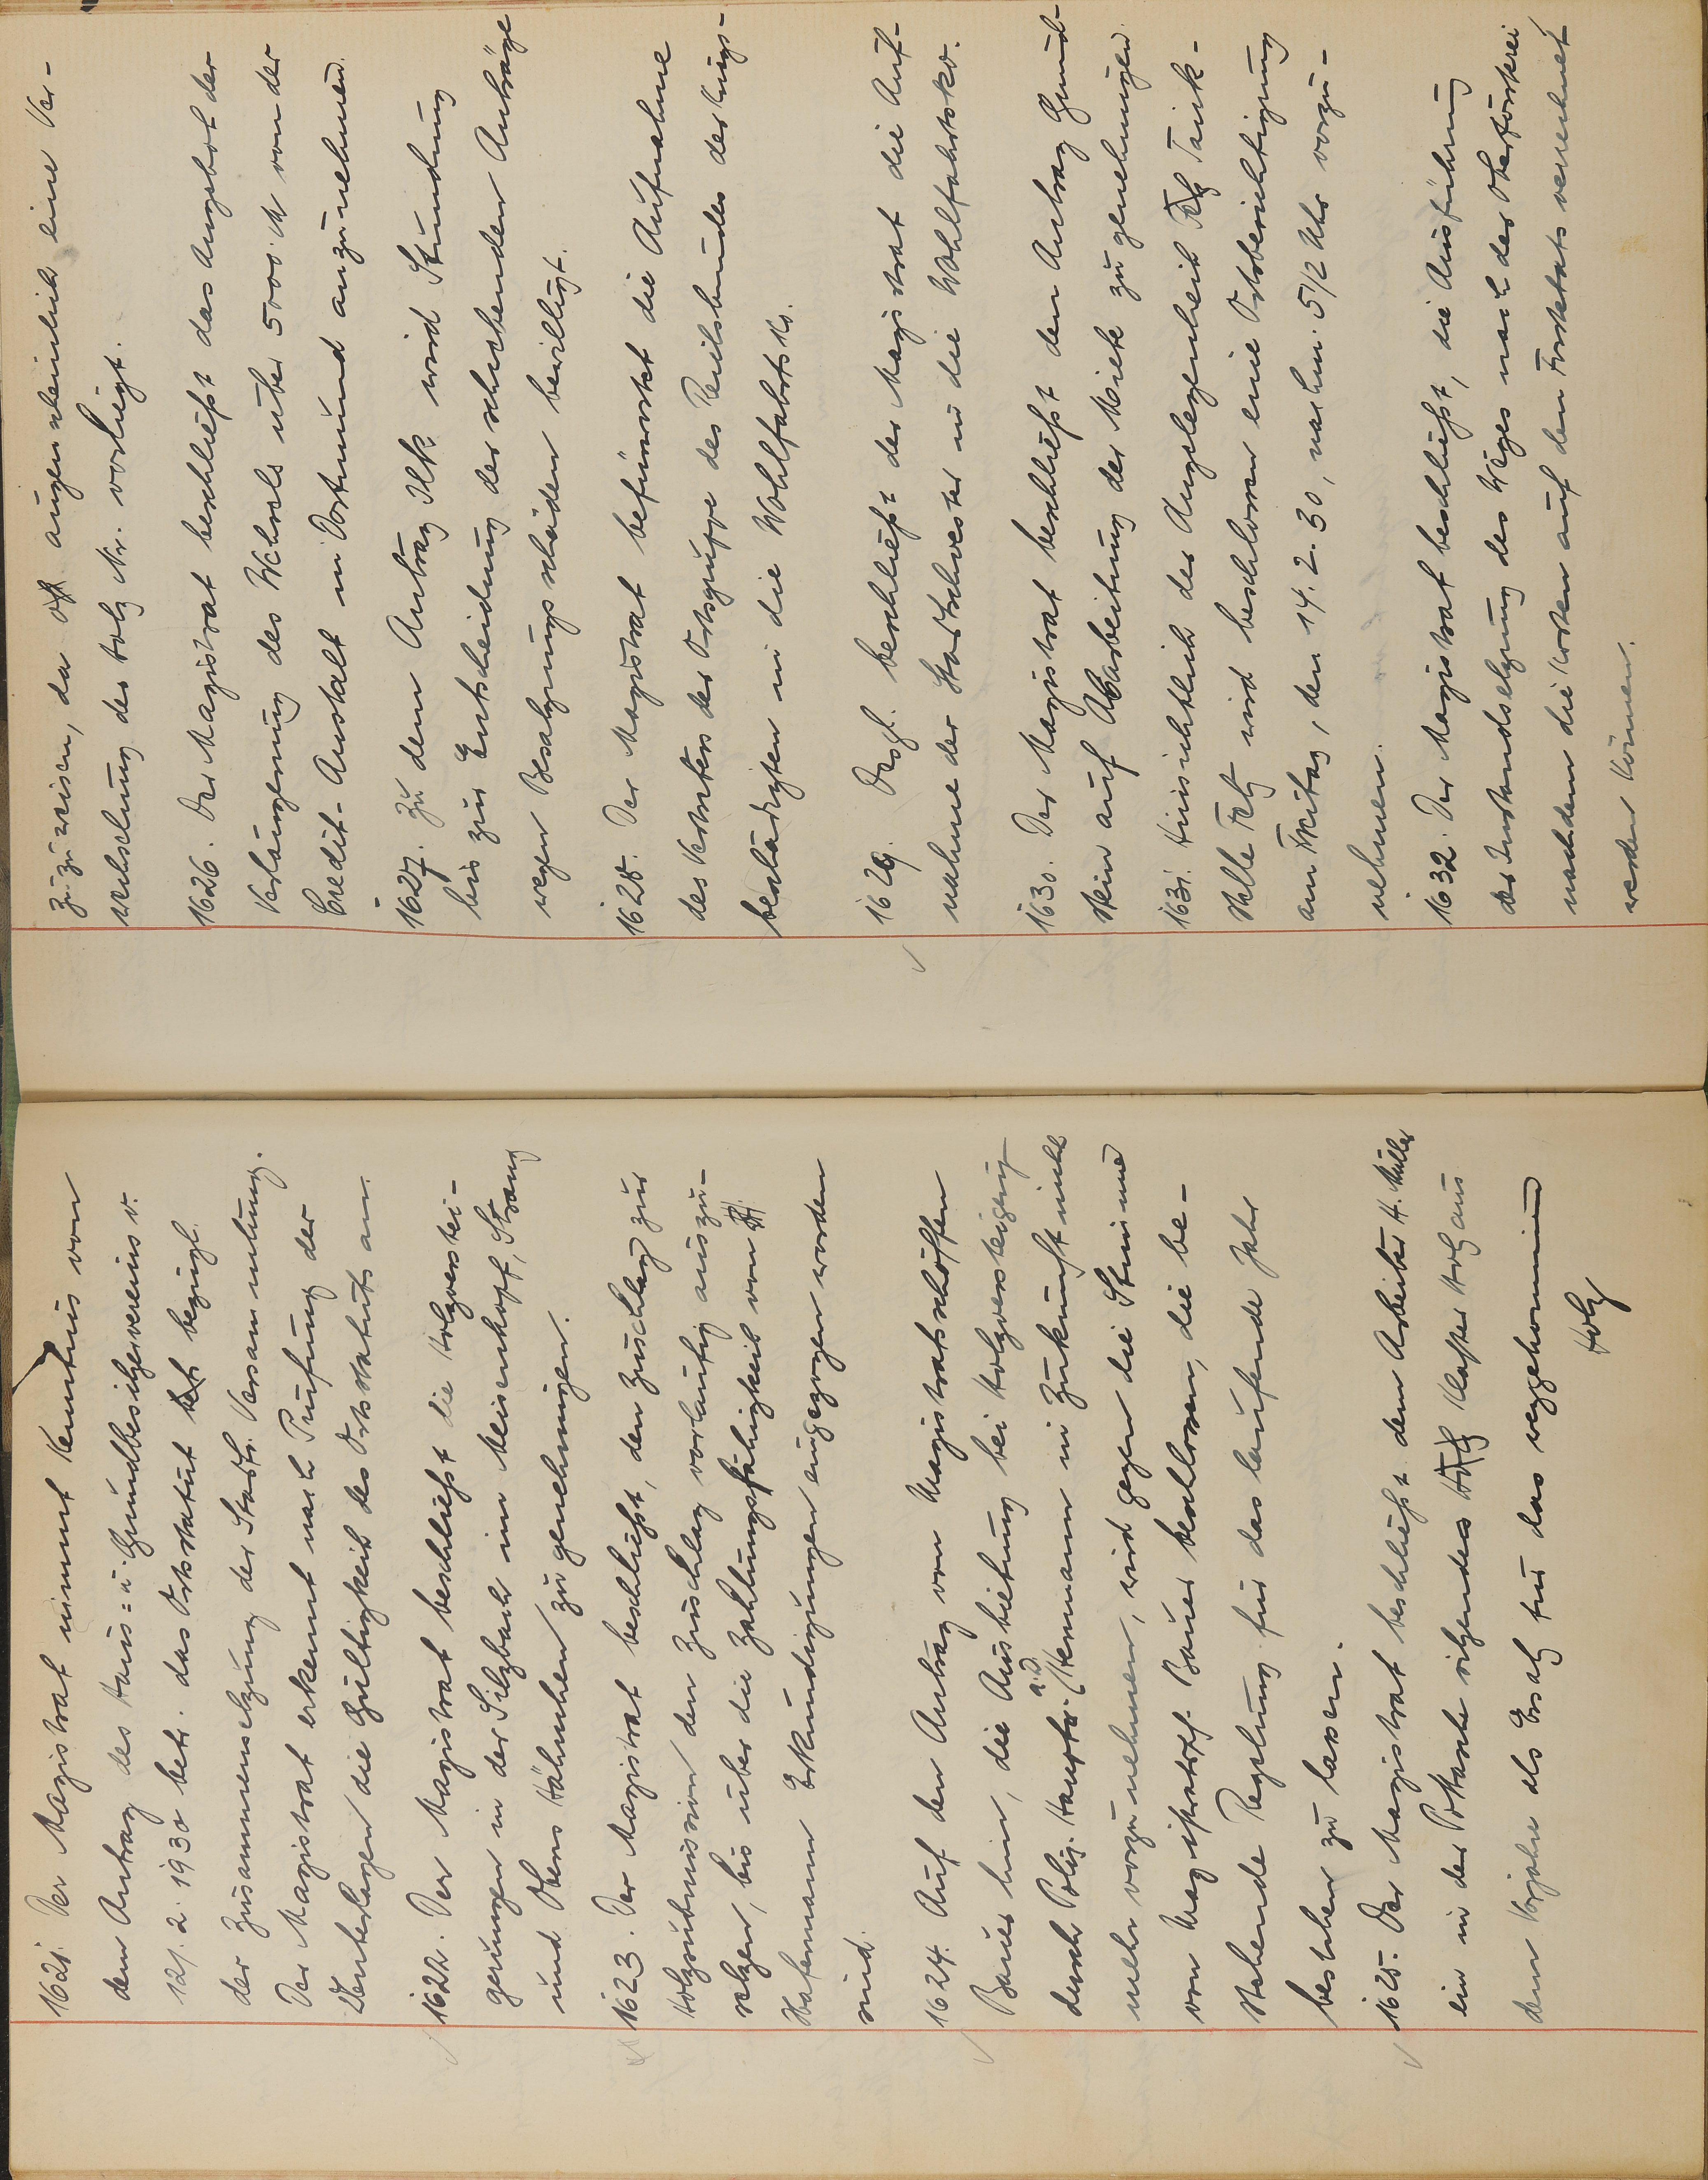 1621. Der Magistrat nimmt Kenntnis von
dem Antrag des Haus- u. Grundbesitzervereins v.
12. 2. 1930 betr. das Ortsstatut bezügl.
der Zusammensetzung der Stadtv. Versammlung.
Der Magistrat erkennt nach Prüfung der
Unterlagen die Gültigkeit des Ortsstatuts an.
1622. Der Magistrat beschließt die Holzverstei-
gerungen in der Silzbach im Meisenkopf, Strang
und Obers Hähnchen zu genehmigen.
1623. Der Magistrat beschließt, den Zuschlag zur
Holzsubmission den Zuschlag vorläufig auszu-
setzen, bis über die Zahlungsfähigkeit von H.
Hafermann Erkundigungen eingezogen worden
sind.
1624. Auf den Antrag von Magistratsschöffen
Bauer hin, die Ausbietung bei Holzversteigerg
durch Poliz. Hauptw. a. D. Hermann in Zukunft nicht
mehr vorzunehmen, wird gegen die Stimme
von Magistratsch. Bauer beschlossen, die be-
stehende Regelung für das laufende Jahr
bestehen zu lassen.
1625. Der Magistrat beschließt dem Arbeiter H. Müller
ein in der Pottasche sitzendes Klafter Holz aus
dem Vorjahre als Ersatz für das weggekommene
Holz
zuzuweisen, da augenscheinlich eine Ver-
wechslung der Holz Nr. vorliegt.
1626. Der Magistrat beschließt das Angebot der
Verlängerung des Wechsels über 5000 M von der
Credit-Anstalt in Dortmund anzunehmen.
1627. Zu dem Antrag Ilk wird Stundung
bis zur Entscheidung der schwebenden Anträge
wegen Besatzungsschäden bewilligt.
1628. Der Magistrat befürwortet die Aufnahme
des Vertreters der Ortsgruppe des Reichsbundes der Kriegs-
beschädigten in die Wohlfahrtsko.
1629. Desgl. beschließt der Magistrat die Auf-
nahme der Stadtschwester in die Wohlfahrtsko.
1630. Der Magistrat beschließt den Antrag Grund-
stein auf Abarbeitung der Miete zu genehmigen.
1631. Hinsichtlich der Angelegenheit Tank-
stelle Fetz wird beschlossen eine Ortsbesichtigung
am Freitag, den 14. 2. 30, nachm. 5 1/2 Uhr vorzu-
nehmen.
1632. Der Magistrat beschließt, die Ausführung
der Instandsetzung des Weges nach der Oberförsterei
nachdem die Kosten auf den Forstetats verrechnet
werden können.